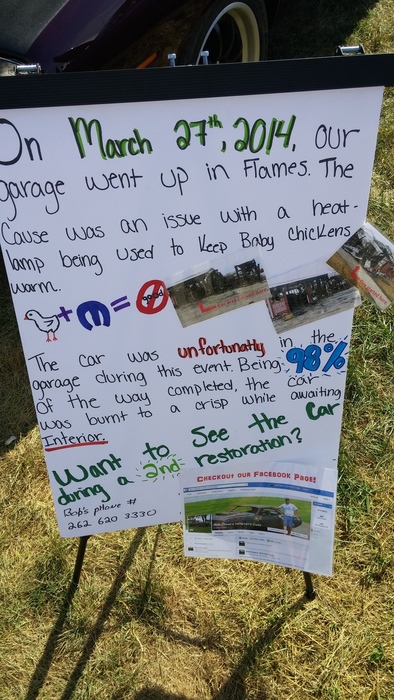 On March 27th, 2014, our
garage went up in Flames. The
Cause was an issue with a heat-
lamp being used to Keep Baby chickens
warm.
+ = good
The car was unfortunatly in the
garage during this event. Being 98%
of the way completed, the car
was burnt to a crisp while awaiting
Interior.
Want to See the Car
during a 2nd restoration?
Bob's phone #
262 620 3330
CHECKOUT OUR FACEBOOK PAGE!